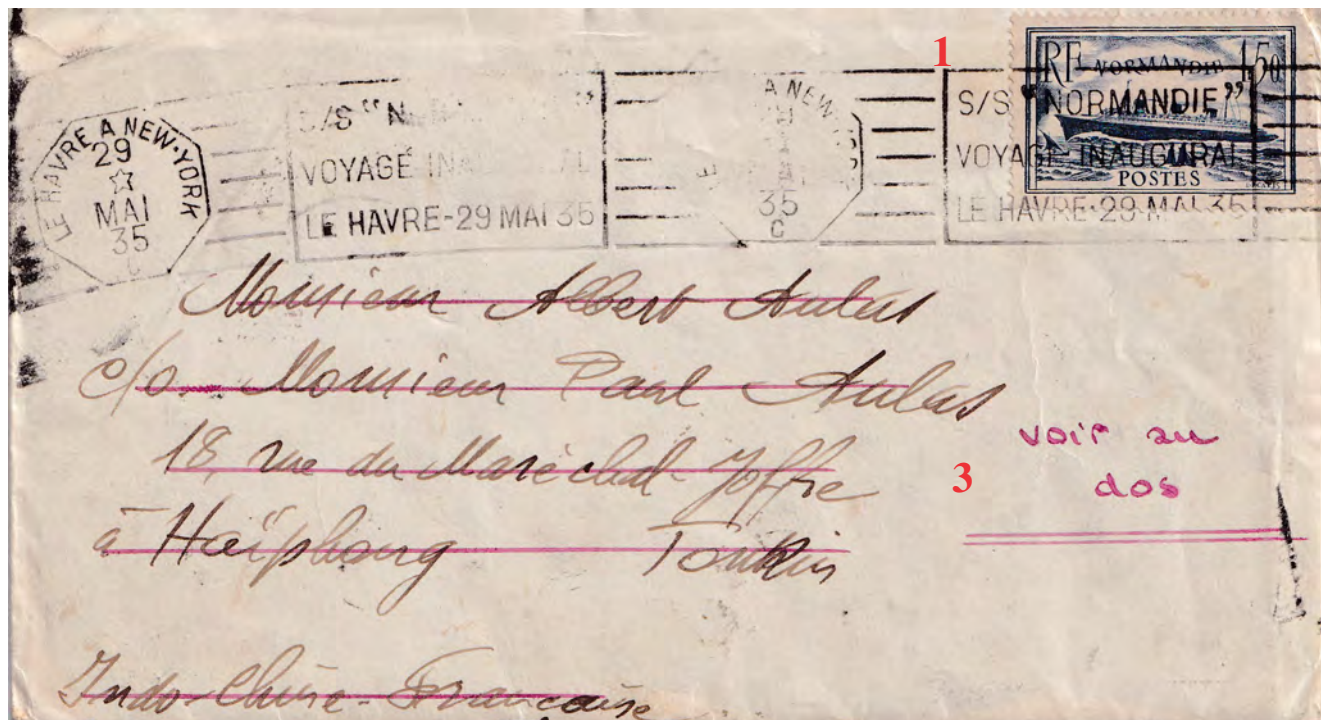 1
RF NORMANDIE 1,50
POSTES
LE HAVRE A NEW-YORK
29
MAI
35
C
S/S "N
VOYAGE IN AL
LE HAVRE-29 MAI 35
A NEW
35
C
S/S "NORMANDIE"
VOYAGE INAUGURAL
LE HAVRE-29 MAI 35
Monsieur Albert Aulas
c/o. Monsieur Paul Aulas
18, rue du Maréchal-Joffre
à Haïphong Tonkin
Indo-Chine-Française
3
voir au
dos